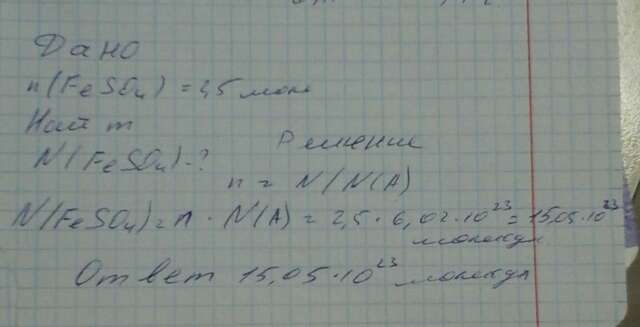 Дано
n(FeSO4) = 2,5 моль
Найт
N(FeSO4)-?
Решение
n = N/N(A)
N(FeSO4) = n · N(A) = 2,5 · 6,02·10²³ = 15,05·10²³
молекул
Ответ 15,05·10²³ молекул